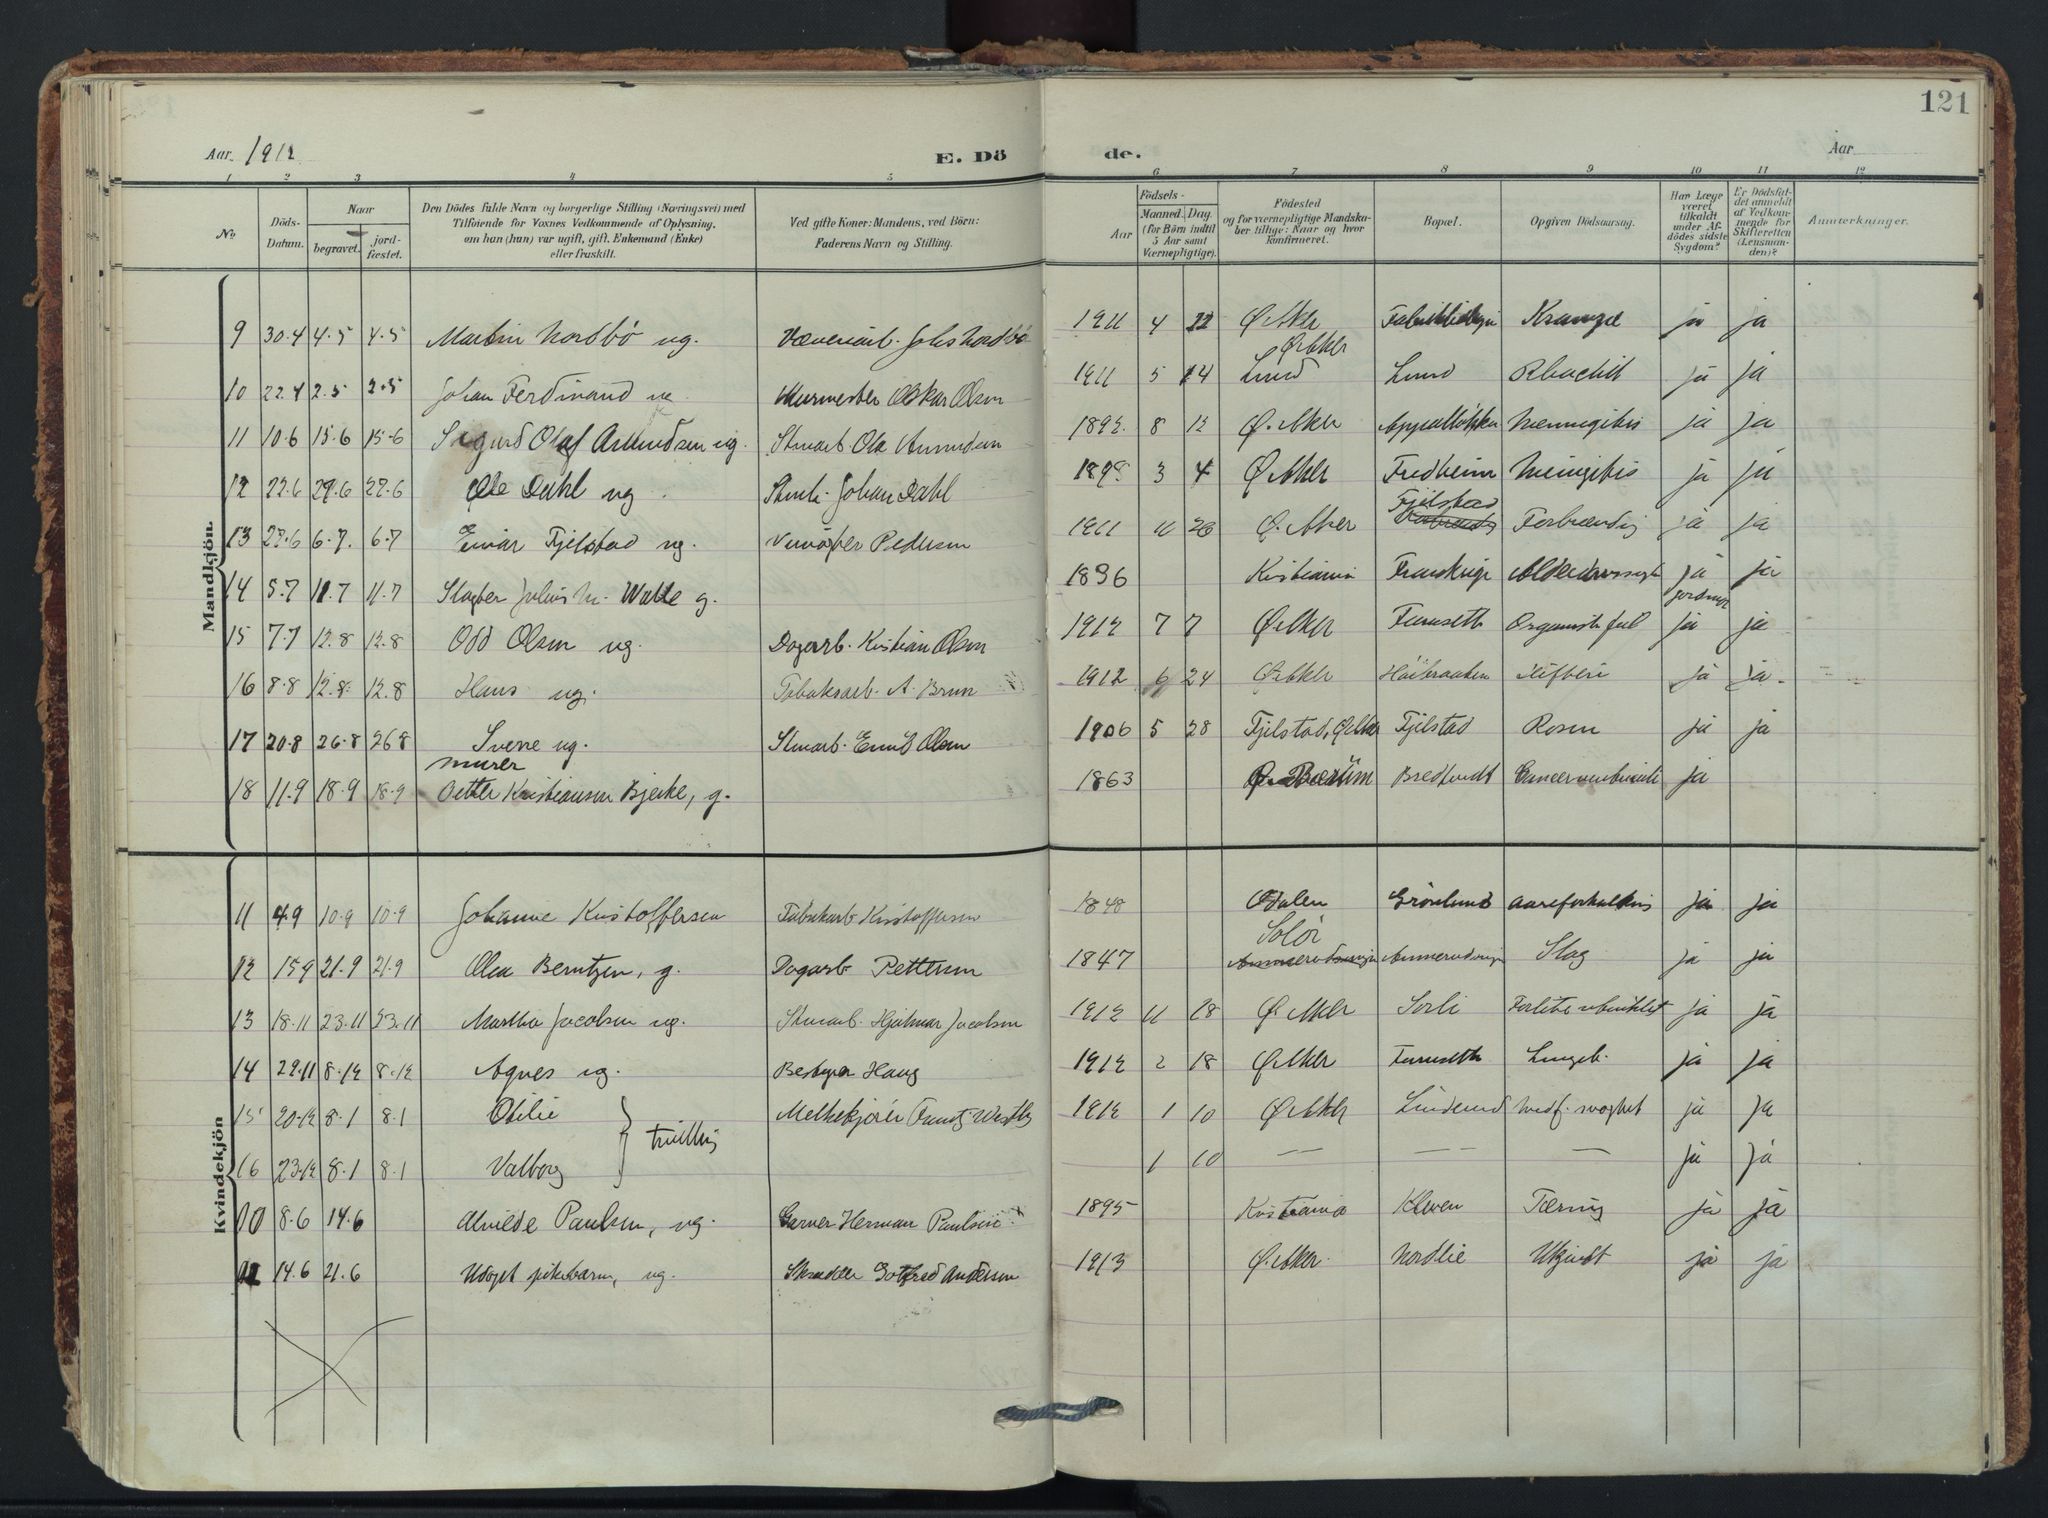 121
Aar. 1912
E. Dö de.
Aar
1 2 3 4 5 6 7 8 9 10 11 12
No.
Döds-Datum.
Naar
begravet.
jord-fæstet.
Den Dödes fulde Navn og borgerlige Stilling (Næringsvei) med
Tilföiende för Voxnes Vedkommende af Oplysning,
om han (hun) var ugift, gift, Enkemand (Enke)
eller fraskilt.
Ved gifte Koner: Mandens, ved Börn:
Faderens Navn og Stilling.
Födsels-
Aar
Maaned. Dag.
(for Börn indtil
5 Aar samt
Værnepligtige).
Födested
og for værnepligtige Mandska-
ber tillige: Naar og hvor
konfirmeret.
Bopæl.
Opgiven Dödsaarsag.
Har Læge
været
tilkaldt
under Af-
dödes sidste
Sygdom?
Er Dödsfal-
det anmeldt
af Vedkom-
mende for
Skifteretten
(Lensman-
den)?
Anmerkninger.
Mandkjön.
9 30.4 4.5 4.5 Martin Nordbö ug. Væveriarb. Johs Nordbö 1911 4 22 Ø. Aker Krampe ja ja
10 22.4 2.5 2.5 Johan Ferdinand ug. Murmester Oskar Olsen 1911 5 14 Lund Ø. Aker Lund Rhachit ja ja
11 10.6 15.6 15.6 Sigurd Olaf Amundsen ug. Stenarb Ole Amundsen 1892 8 12 Ø. Aker Appalløkka Menningitis ja ja
12 22.6 29.6 29.6 Ole Dahl ug. Stenh. Johan Dahl 1898 3 4 Ø. Aker Fredheim Meningitis ja ja
13 27.6 6.7. 6.7 Einar Fjelstad ug. Pedersen 1911 11 26 Ø. Aker Fjelstad Forbrænding ja ja
14 5.7 11.7 11.7 Slagter Julius M. Walle g. 1836 Kristiania ja ja
15 7.7 12.8 12.8 Odd Olsen ug. Dagarb. Kristian Olsen 1912 7 7 Ø. Aker Furuseth Organisk feil ja jordmor ja
16 8.8 12.8. 12.8 Hans ug. Tobaksarb. A. Brun 1912 6 24 Ø. Aker Höibraaten ja ja
17 20.8 26.8 26 8 Sverre ug. Stenarb. Emil Olsen 1906 5 28 Fjelstad, Ø. Aker Fjelstad Rosen ja ja
murer
18 11.9 18.9 18.9 Petter Kristiansen Bjerke, g. 1863 Bærum Bredtvedt Cancer ventriculi ja
Kvindekjön
11 4.9 10.9 10.9 Johanne Kristoffersen Tobakarb Kristoffersen 1848 Odalen Grönlund aareforkalkning ja ja
12 15.9 21.9 21.9 Olea Berntzen, g. Dagarb Petterson 1847 Solör Ammerudengen Ammerudengen Slag ja ja
13 18.11 23.11 23.11 Martha Jacobsen ug. Stenarb. Hjalmar Jacobsen 1912 11 18 Ø. Aker Sorli ja ja
14 29.11 8.12 8.12 Agnes ug. Bestyrer Haug 1912 2 18 Ø. Aker Furuseth Lungeb. ja ja
15 20.12 8.1 8.1 Otilie } tvilling Melkekjörer 1912 1 10 Ø. Aker Linderud Medf. svaghet ja ja
16 23.12 8.1 8.1 Valborg 1 10 — — — — ja ja
10 8.6 14.6 Alvilde Paulsen, ug. Garver Herman Paulsen 1895 Kristiania Kleven Tæring ja ja
11 14.6 21.6 Udøpt pikebarn, ug. Skrædder Gotfred Andersen 1913 Ø. Aker. Nordlie Ukjendt ja ja